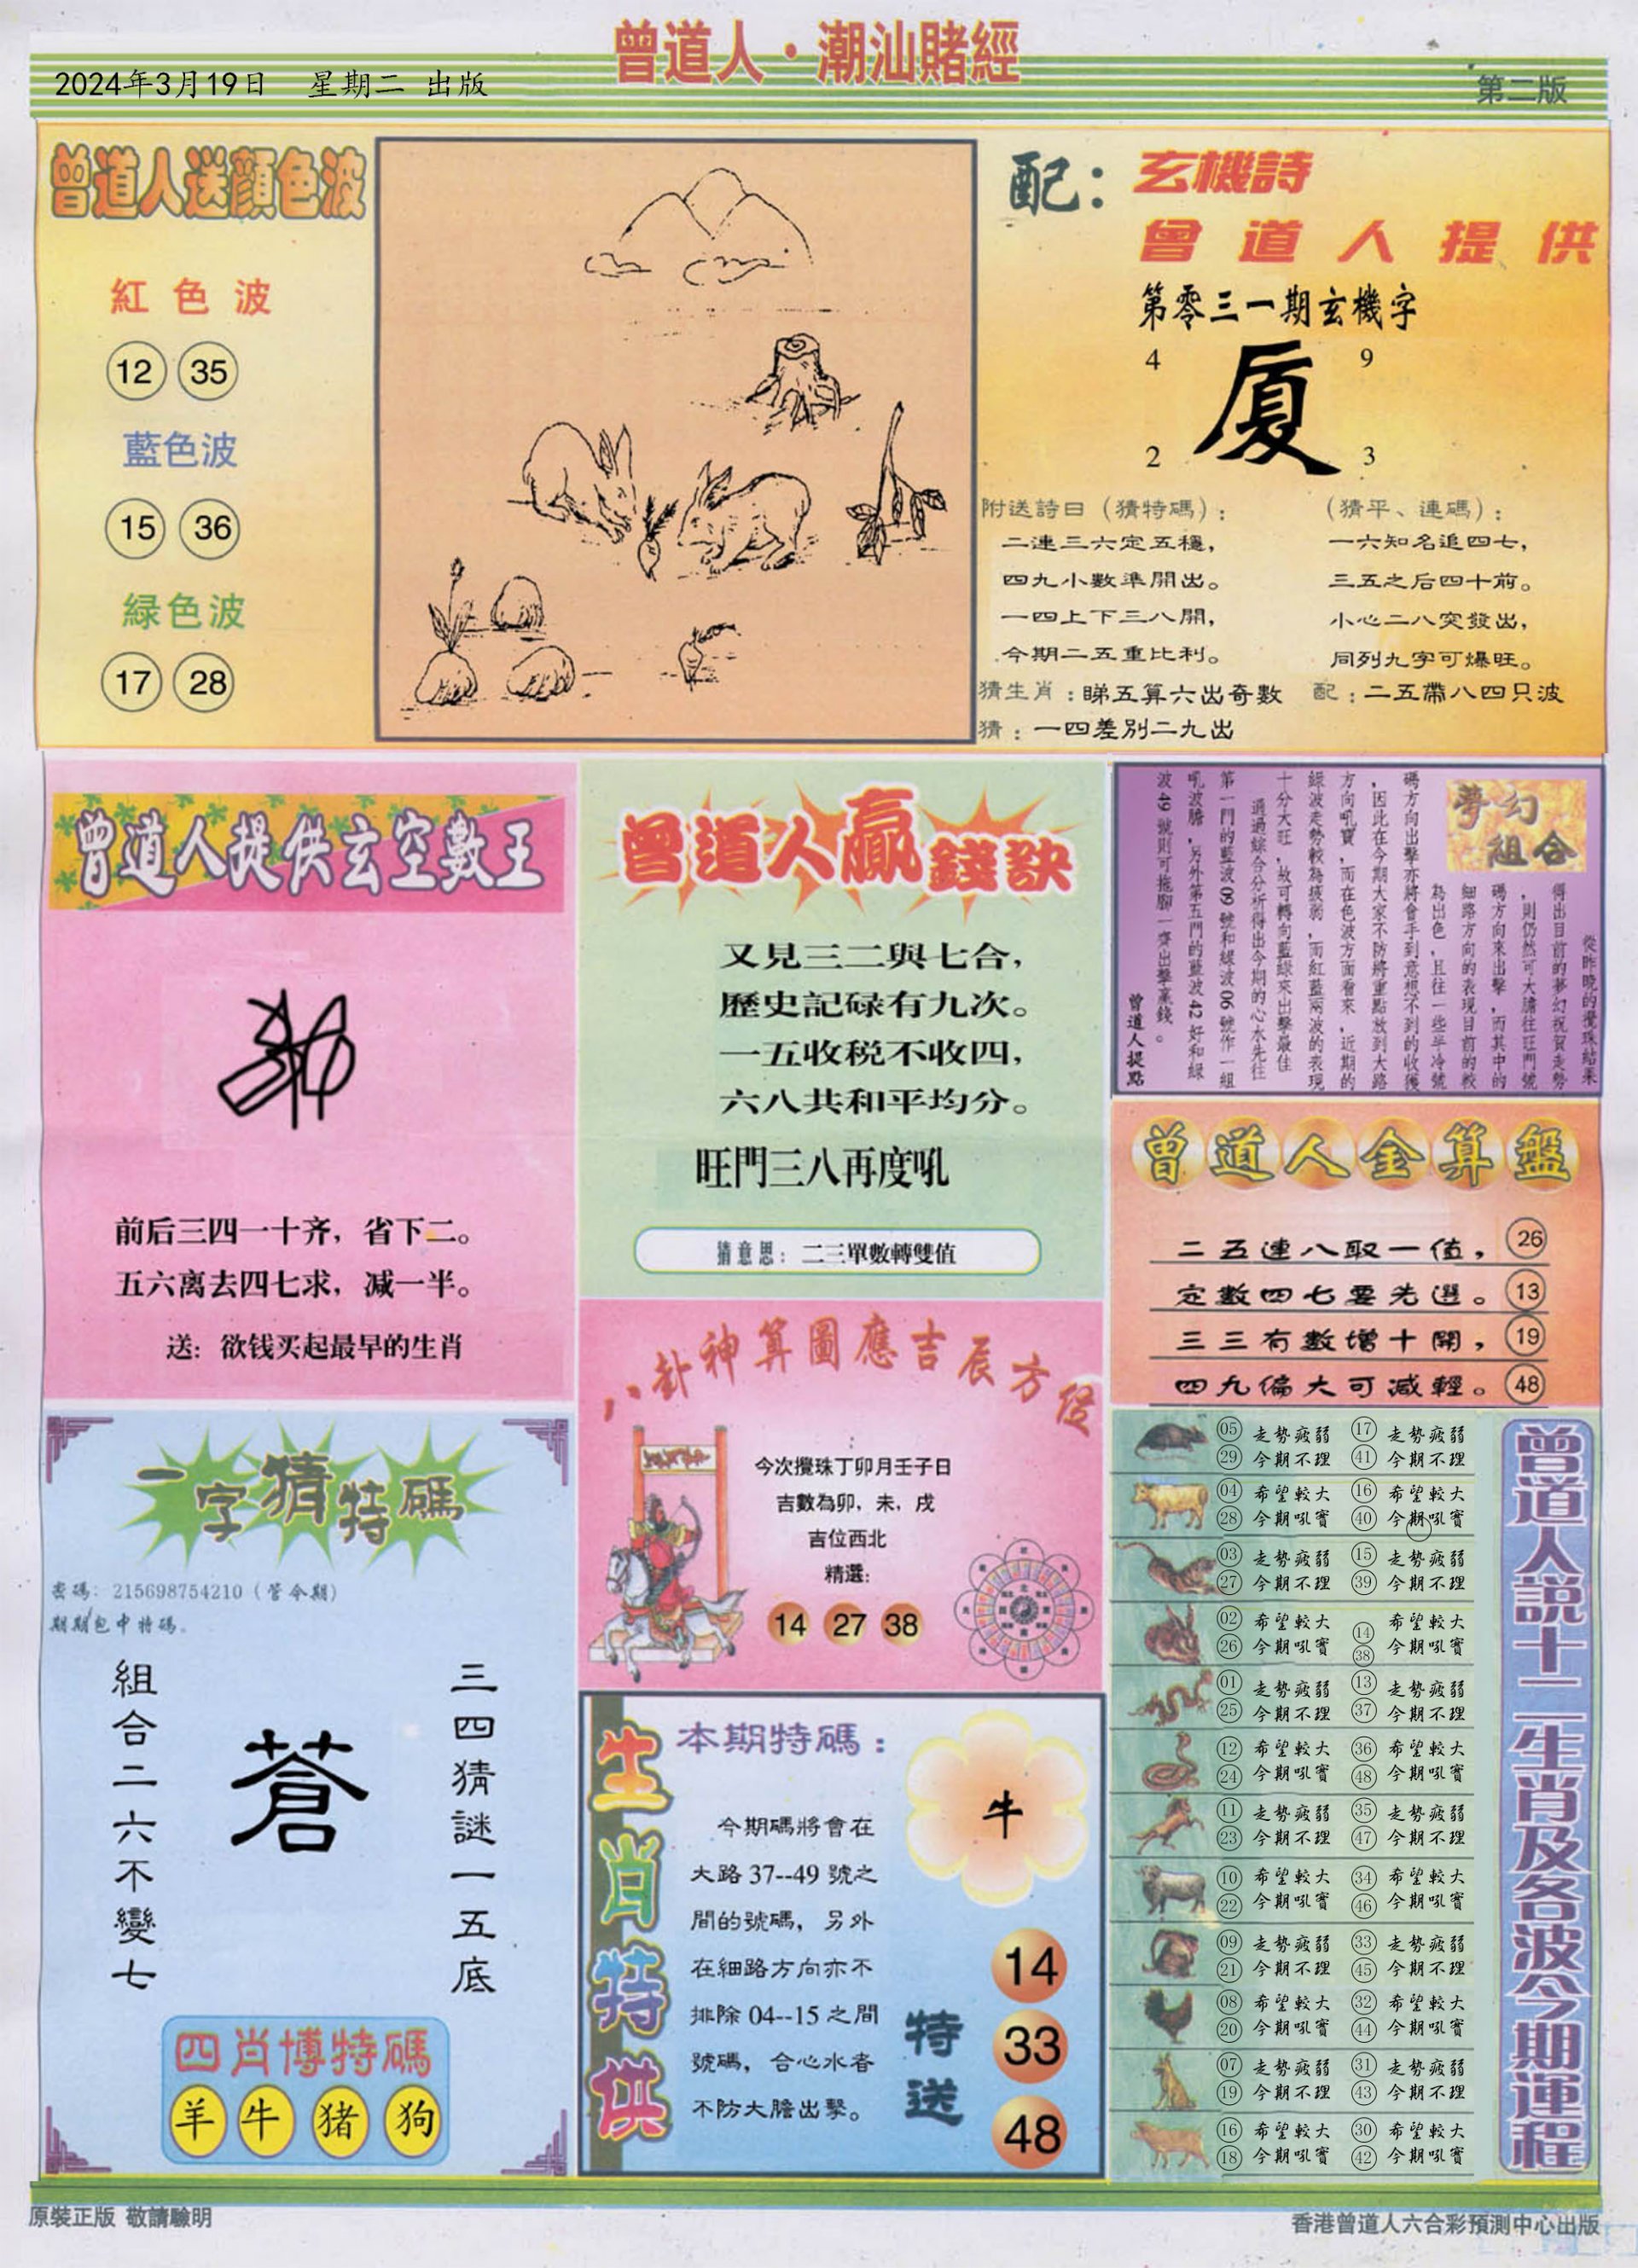 曾道人·潮汕賭經
2024年3月19日 星期二 出版
第二版
曾道人送顏色波
紅色波
12 35
藍色波
15 36
緑色波
17 28
配：玄機詩
曾道人提供
第零三一期玄機字
4 9
廈
2 3
附送詩日（猜特碼）：
二連三六定五穩，
四九小數準開出。
一四上下三八開，
今期二五重比利。
（猜平、連碼）：
一六知名追四七，
三五之后四十前。
小心二八突發出，
同列九字可爆旺。
猜生肖：睇五算六出奇數 配：二五帶八四只波
猜：一四差別二九出
曾道人提供玄空數王
前后三四一十齐，省下二。
五六离去四七求，减一半。
送：欲钱买起最早的生肖
曾道人贏錢訣
又見三二與七合，
歷史記碌有九次。
一五收税不收四，
六八共和平均分。
旺門三八再度吼
猜意思：二三單數轉雙值
夢幻組合
從昨晚的攪珠結果
得出目前的夢幻祝賀走勢
，則仍然可大膽往旺門號
碼方向來出擊，而其中的
細路方向的表現目前的較
為出色，且往一些半冷號
碼方向出擊亦將會手到意想不到的收獲
，因此在今期大家不防將重點放到大路
方向吼寶，而在色波方面看來，近期的
緑波走勢較為疲弱，而紅藍兩波的表現
十分大旺，故可轉向藍緑來出擊最佳
通過綜合分析得出今期的心水先往
第一門的藍波09號和緑波06號作一組
吼波膽，另外第五門的藍波42好和緑
波49號則可拖腳一齊出擊贏錢。
曾道人提點
曾道人金算盤
二五連八取一值，26
定數四七要先選。13
三三有數增十開，19
四九偏大可減輕。48
八卦神算圖應吉辰方位
今次攪珠丁卯月壬子日
吉數為卯，未，戌
吉位西北
精選：
14 27 38
一字猜特碼
密碼：215698754210（管今期）
期期包中特碼。
三四猜謎一五底
蒼
組合二六不變七
四肖博特碼
羊 牛 猪 狗
生肖特供
本期特碼：
牛
今期碼將會在
大路37--49號之
間的號碼，另外
在細路方向亦不
排除04--15之間
號碼，合心水者
不防大膽出擊。
特送
14
33
48
曾道人說十二生肖及各波今期運程
05 走勢疲弱 17 走勢疲弱
29 今期不理 41 今期不理
04 希望較大 16 希望較大
28 今期吼寶 40 今期吼寶
03 走勢疲弱 15 走勢疲弱
27 今期不理 39 今期不理
02 希望較大 14 希望較大
26 今期吼寶 38 今期吼寶
01 走勢疲弱 13 走勢疲弱
25 今期不理 37 今期不理
12 希望較大 36 希望較大
24 今期吼寶 48 今期吼寶
11 走勢疲弱 35 走勢疲弱
23 今期不理 47 今期不理
10 希望較大 34 希望較大
22 今期吼寶 46 今期吼寶
09 走勢疲弱 33 走勢疲弱
21 今期不理 45 今期不理
08 希望較大 32 希望較大
20 今期吼寶 44 今期吼寶
07 走勢疲弱 31 走勢疲弱
19 今期不理 43 今期不理
16 希望較大 30 希望較大
18 今期吼寶 42 今期吼寶
原裝正版 敬請驗明
香港曾道人六合彩預測中心出版